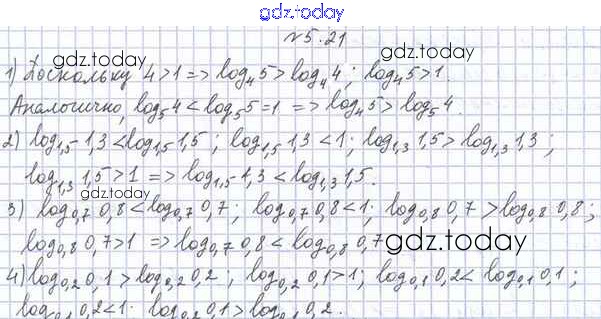 gdz.today
№5.21
gdz.today
gdz.today
1) Поскольку 4>1 => log₄5>log₄4; log₄5>1.
Аналогично, log₅4<log₅5=1 => log₄5>log₅4.
2) log₁,₅1,3<log₁,₅1,5; log₁,₅1,3<1; log₁,₃1,5>log₁,₃1,3;
gdz.today
log₁,₃1,5>1 => log₁,₅1,3<log₁,₃1,5.
3) log₀,₇0,8<log₀,₇0,7; log₀,₇0,8<1; log₀,₈0,7>log₀,₈0,8;
log₀,₈0,7>1 => log₀,₇0,8<log₀,₈0,7
gdz.today
4) log₀,₂0,1>log₀,₂0,2; log₀,₂0,1>1; log₀,₁0,2<log₀,₁0,1;
log₀,₁0,2<1. log₀,₂0,1>log₀,₁0,2.